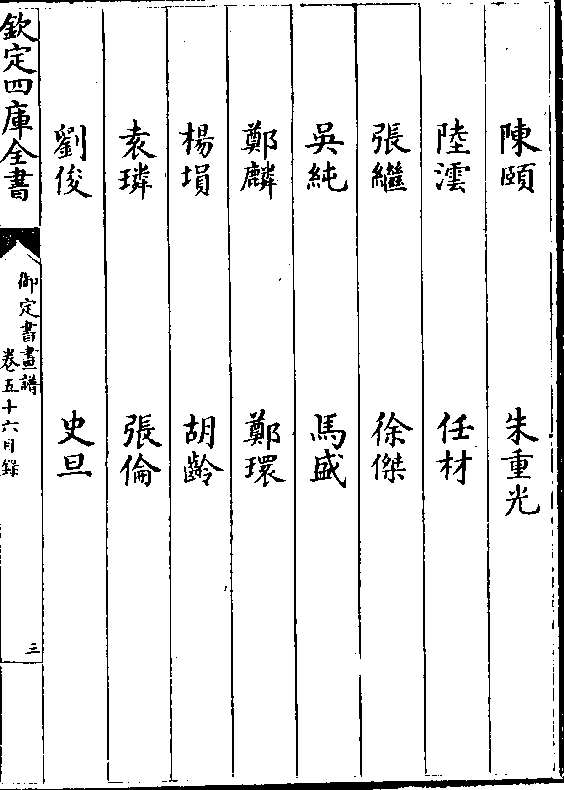 陳頤 朱重光
陸澐 任材
張繼 徐傑
吳純 馬盛
鄭麟 鄭環
楊塤 胡齡
袁璘 張倫
劉俊 史旦
欽定四庫全書
御定書畫譜
卷五十六目錄
三